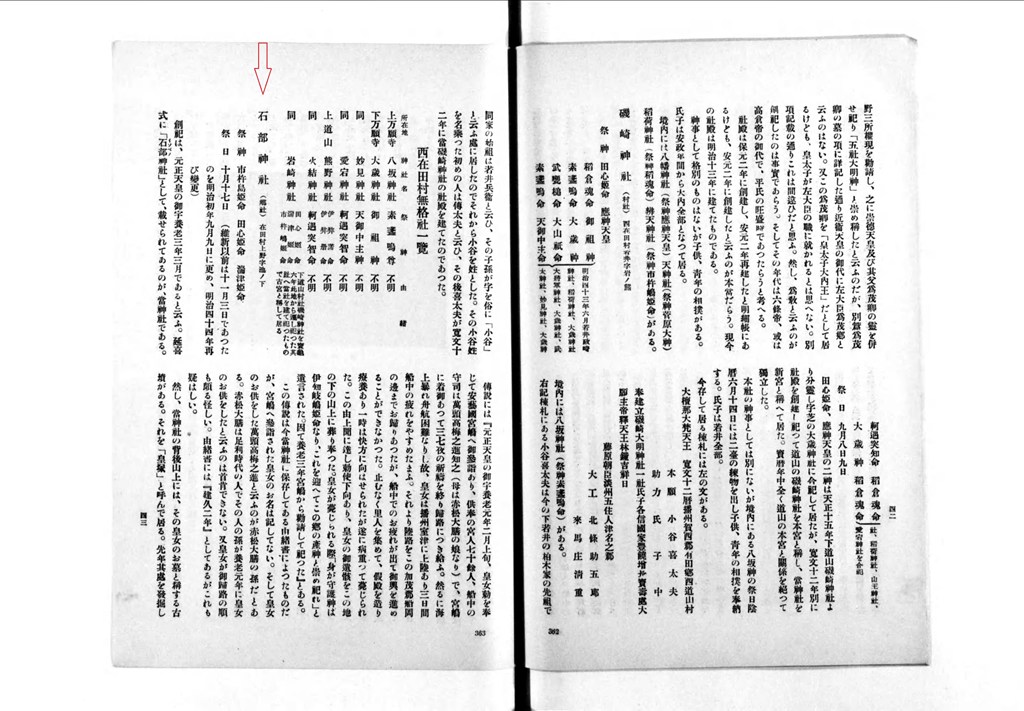 野三所權現を勸請し、之に崇德天皇及び其父爲茂卿の靈を併
せ祀り「五社大明神」と崇め稱したと云ふのだが、別篇爲茂
卿の墓の項に詳記した通り近衞天皇の御代に左大臣爲茂卿と
云ふのはない。又この爲茂卿を「皇太子大內王」だとして居
るけども、皇太子が左大臣の職に就かれるとは思へない。別
項記載の通りこれは間違ひだと思ふ。然し、爲敎と云ふのが
創祀したのは事實であらう。そしてその年代は六條帝、或は
高倉帝の御代で、平氏の旺盛時であつたらうと考へる。
社殿は保元二年に創建し、安元二年再建したと明細帳にあ
るけども、安元二年に創建したと云ふのが本當だらう。現今
の社殿は明治十三年に建てたものである。
神事として特別のものはないが子供、青年の相撲がある。
氏子は安政年間から大內全部となつて居る。
境內には八幡神社(祭神應神天皇)天神社(祭神菅原大神)
稻荷神社(祭神稻魂命)辨天神社(祭神市杵嶋姬命)がある。
磯崎神社 (村社) 西在田村西井字宮ノ鼻
祭神 田心姬命 應神天皇
稻倉魂命 御祖神
素盞嗚命 大歲神
武甕槌命 大山祇命
素盞嗚命 天御中主命
明治四十三年六月若井政崎
神社、稻荷神社、大歲神社
大將軍神社、大歲神社、武
大神社、妙見神社、大歲神
四二
柯遇突知命 稻倉魂命
大歲神 稻倉魂命
社、稻荷神社、山王神社、
愛宕神社を合祀
祭日 九月八日九日
田心姬命、應神天皇の二神は天正十五年下道山磯崎神社よ
り分靈し字芝の大歲神社に合祀して居たが、寬文十二年別に
社殿を創建し祀つて道山の磯崎神社を本宮と稱し、當神社を
新宮と稱へて居た。寶曆年中全く道山の本宮と關係を絕つて
獨立した。
本社の神事としては別にないが境內にある八坂神の祭日陰
曆六月十四日には二臺の練物を出し子供、青年の相撲を奉納
する。氏子は若井全部。
今存して居る棟札には左の文がある。
大檀那大梵天王 寬文十二曆播州賀西郡有田鄕四道山村
本願 小谷喜太夫
助力 氏子中
奉建立磯崎大明神社一社氏子各信國家豊饒增尹寶壽處大
願主帝釋天王林鐘吉鮮日
藤原朝臣淡州五住人津名之郡
大工 北條助五郞
來馬庄清重
境內には八坂神社(祭神素盞嗚命)がある。
右記棟札にある小谷喜太夫は今の下若井の柏木家の先祖で
362
同家の始祖は若井兵衞と云ひ、その子孫が字を俗に「小谷」
と云ふ處に居したのでそれから小谷を姓とした。その小谷姓
を名乘つた初めの人は傳太夫と云ひ、その後喜太夫が寬文十
二年に當磯崎神社の社殿を建てたのであつた。
西在田村無格社一覽
所在地 神社名 祭神 由緖
上万願寺 八坂神社 素盞嗚尊 不明
下万願寺 大歲神社 御祖神 不明
同 妙見神社 天御中主神 不明
同 愛宕神社 柯遇突智命 不明
上道山 熊野神社 伊弉諾命 伊弉册命 不明
同 火結神社 柯遇突智命 不明
同 岩崎神社 田心姬命 湍津姬命 市杵嶋姬命
下道山村磯崎神社を寶曆
六年此地から遷し祀つた其
趾に當社を建て祀つたもの
で古宮と稱して居る
石部神社 (鄕社) 在田村上野字池ノ下
祭神 市杵島姬命 田心姬命 湍津姬命
祭日 十月十七日 (維新以前は十一月三日であつた
のを明治初年九月九日に更め、明治四十四年再
び變更)
創祀は、元正天皇の御宇養老三年三月であると云ふ。延喜
式に「石部神社」として、載せられてゐるのが、當神社である。
傳說には『元正天皇の御宇養老元年二月上旬、皇女勅を奉
じて安藝國宮嶋へ御參詣あり、供奉の宮人七十餘人、船中の
守司は萬頭高梅之進知之(母は赤松大膳の娘なり)で、宮嶋
に着御あつて三七夜の祈禱を終り歸路につき給ふ。然るに海
上暴れ舟航困難なりし故、皇女は播州室津に上陸あり三日間
船中の疲れをやすめたまふ、それより陸路をこの加茂郡船岡
の邊までお歸りあつたが、船中でのお疲れが出て御輿を進め
ることができなかつた。止むなく里人を集めて、假殿を造り
療養あり一時は快方に向はせられたが遂に病重つて薨じられ
た。この山上聞に達し勅使下向あり、皇女の御遺骸をこの地
の下の山上に葬り奉つた。皇女が薨じられる際「身が守護神は
伊知岐嶋姬命なり、これを迎へてこの鄕の產神と崇め祀れ」と
遺言された。因て養老三年宮嶋から勸請して祀つた』とある。
この傳說は今當神社に保存してある由緖書によつたものだ
が、宮嶋へ參詣された皇女のお名は記してない。そして皇女
のお供をした萬頭高梅之進と云ふのが赤松大膳の孫だとあ
る。赤松大膳は足利時代の人でその人の孫が養老元年に皇女
のお供をしたと云ふのは首肯できない。又皇女が御歸路の順
も頗る怪しい。由緖書には『建久二年』としてあるがこれも
疑はしい。
然し、當神社の背後山上には、その皇女のお墓と稱する古
墳がある。それを「皇塚」と呼んで居る。先年其處を發掘し
四三
363